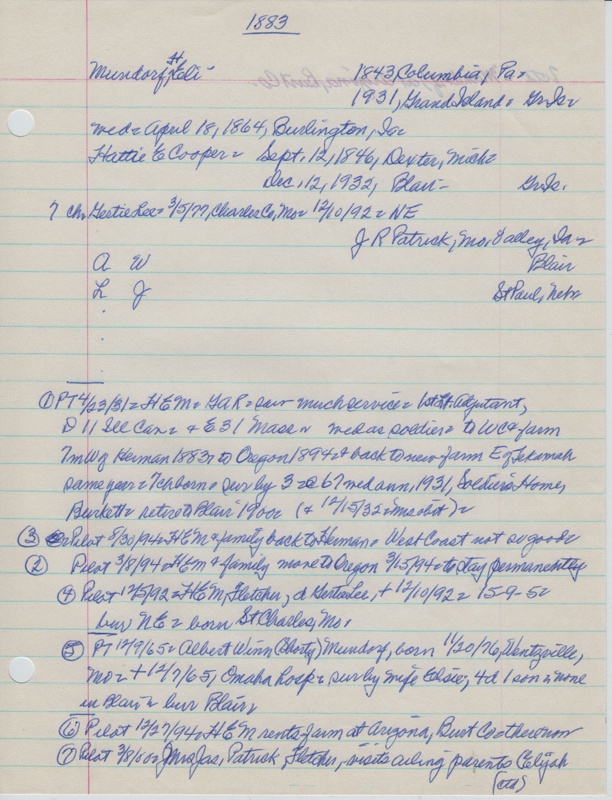 1883
Mundorf, H. Eli 1843, Columbia, Pa=
1931, Grand Island= Gr. Is=
wed= April 18, 1864, Burlington, Ia=
Hattie E Cooper= Sept. 12, 1846, Dexter, Mich=
Dec. 12, 1932, Blair- Gr. Is.
7 ch. Gertie Lee= 3/5/77, Charles Co, Mo= 12/10/92= NE
J R Patrick, Mo. Valley, Ia=
A W Blair
L J St Paul, Nebr
① PT 4/23/31= H E M= GAR= saw much service= 1st Lt. Adjutant,
D 11 Ill Cav= & E 31 Mass= wed as soldier= to WC& farm
7m W of Herman 1883= to Oregon 1894& back to new farm E of Tekamah
same year= 7 ch born= sur by 3= 67 wed ann, 1931, Soldiers Home,
Burkett= retire to Blair 1900= (& 12/15/32= obit)=
③ Pilot 5/30/94= H E M & family back to Herman= West Coast not so good=
② Pilot 3/8/94= H E M & family move to Oregon 3/15/94= to stay permanently
④ Pilot 12/15/92= H E M, Fletcher, d Gertie Lee, + 12/10/92= 15-9-5=
bur NE= born St Charles, Mo.
⑤ PT 12/9/65= Albert Winn (Shorty) Mundorf, born 11/20/76, Wentzville,
Mo= + 12/7/65, Omaha hosp= sur by wife Elsie, 4 d 1 son= none
in Blair= bur Blair=
⑥ Pilot 12/27/94= H E M rents farm at Arizona, Burt Co= there now
⑦ Pilot 3/8/00= Mrs Jas. Patrick, Fletcher, visits ailing parents (Elijah
(ctd)